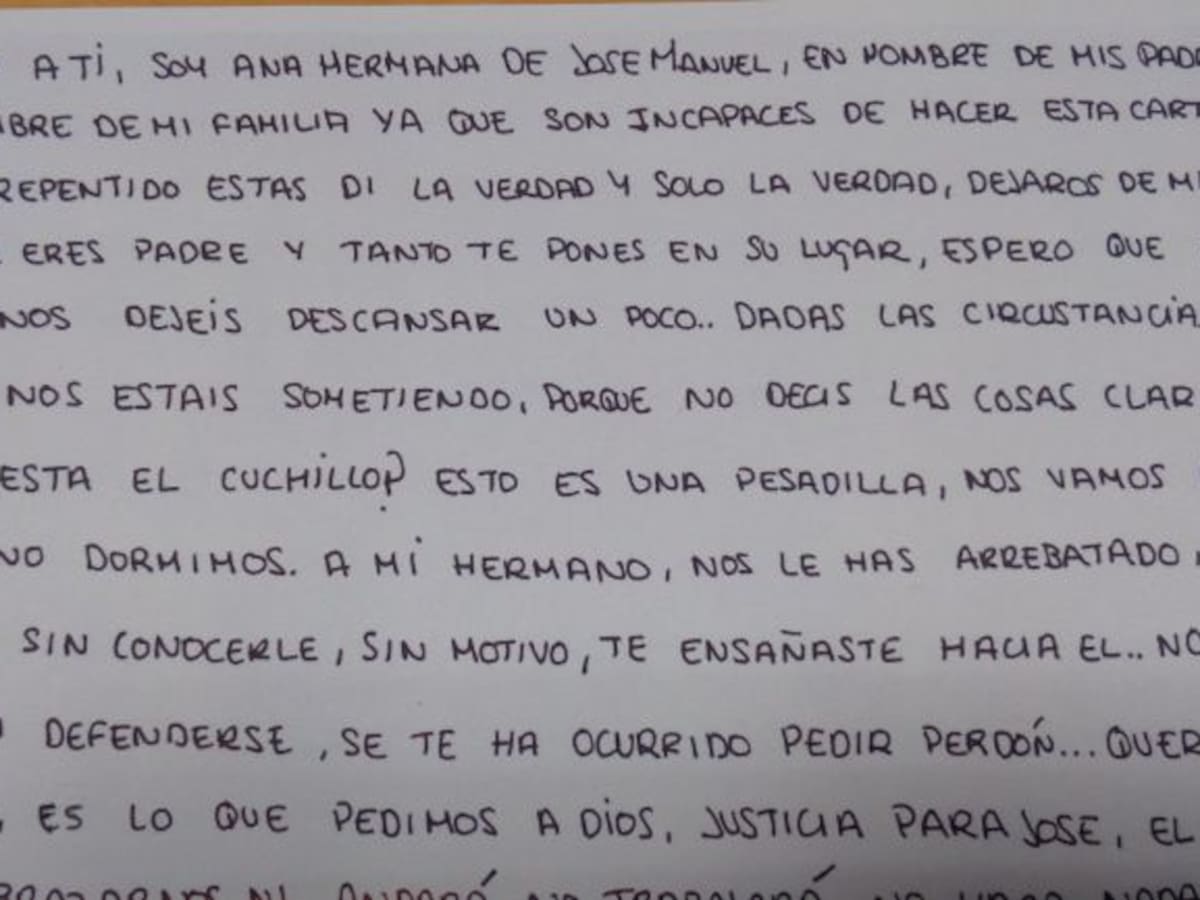 A TI, SOY ANA HERMANA DE JOSE MANUEL, EN NOMBRE DE MIS PADR
BRE DE MI FAMILIA YA QUE SON INCAPACES DE HACER ESTA CART
REPENTIDO ESTAS DI LA VERDAD Y SOLO LA VERDAD, DEJAROS DE M
ERES PADRE Y TANTO TE PONES EN SU LUGAR, ESPERO QUE
NOS DEJEIS DESCANSAR UN POCO.. DADAS LAS CIRCUSTANCIA
NOS ESTAIS SOMETIENDO, PORQUE NO DECIS LAS COSAS CLAR
ESTA EL CUCHILLO? ESTO ES UNA PESADILLA, NOS VAMOS
NO DORMIMOS. A MI HERMANO, NOS LE HAS ARREBATADO
SIN CONOCERLE, SIN MOTIVO, TE ENSAÑASTE HACIA EL.. NO
DEFENDERSE, SE TE HA OCURRIDO PEDIR PERDÓN... QUER
, ES LO QUE PEDIMOS A DIOS, JUSTICIA PARA JOSE, EL